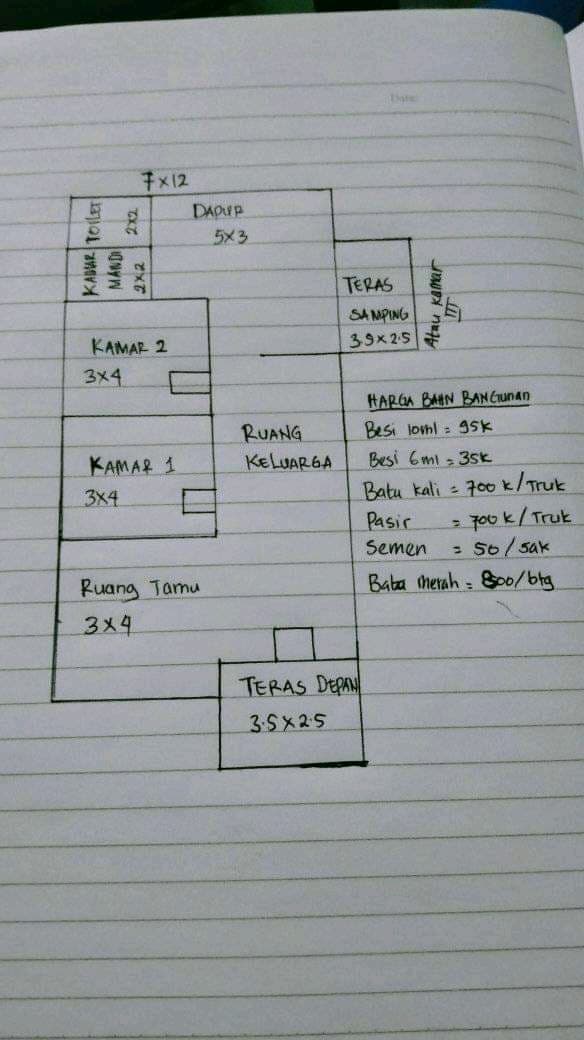 Date:
7x12
TOILET 2x2
DAPUR
5x3
KAMAR
MANDI
2x2
TERAS
SAMPING
3.5x2.5
Atau kamar
III
KAMAR 2
3x4
KAMAR 1
3x4
RUANG
KELUARGA
Ruang Tamu
3x4
TERAS DEPAN
3.5x2.5
HARGA BAHN BANGunan
Besi 10ml = 95k
Besi 6ml = 35k
Batu kali = 700 k/Truk
Pasir = 700 k/Truk
Semen = 50/sak
Bata merah = 800/btg